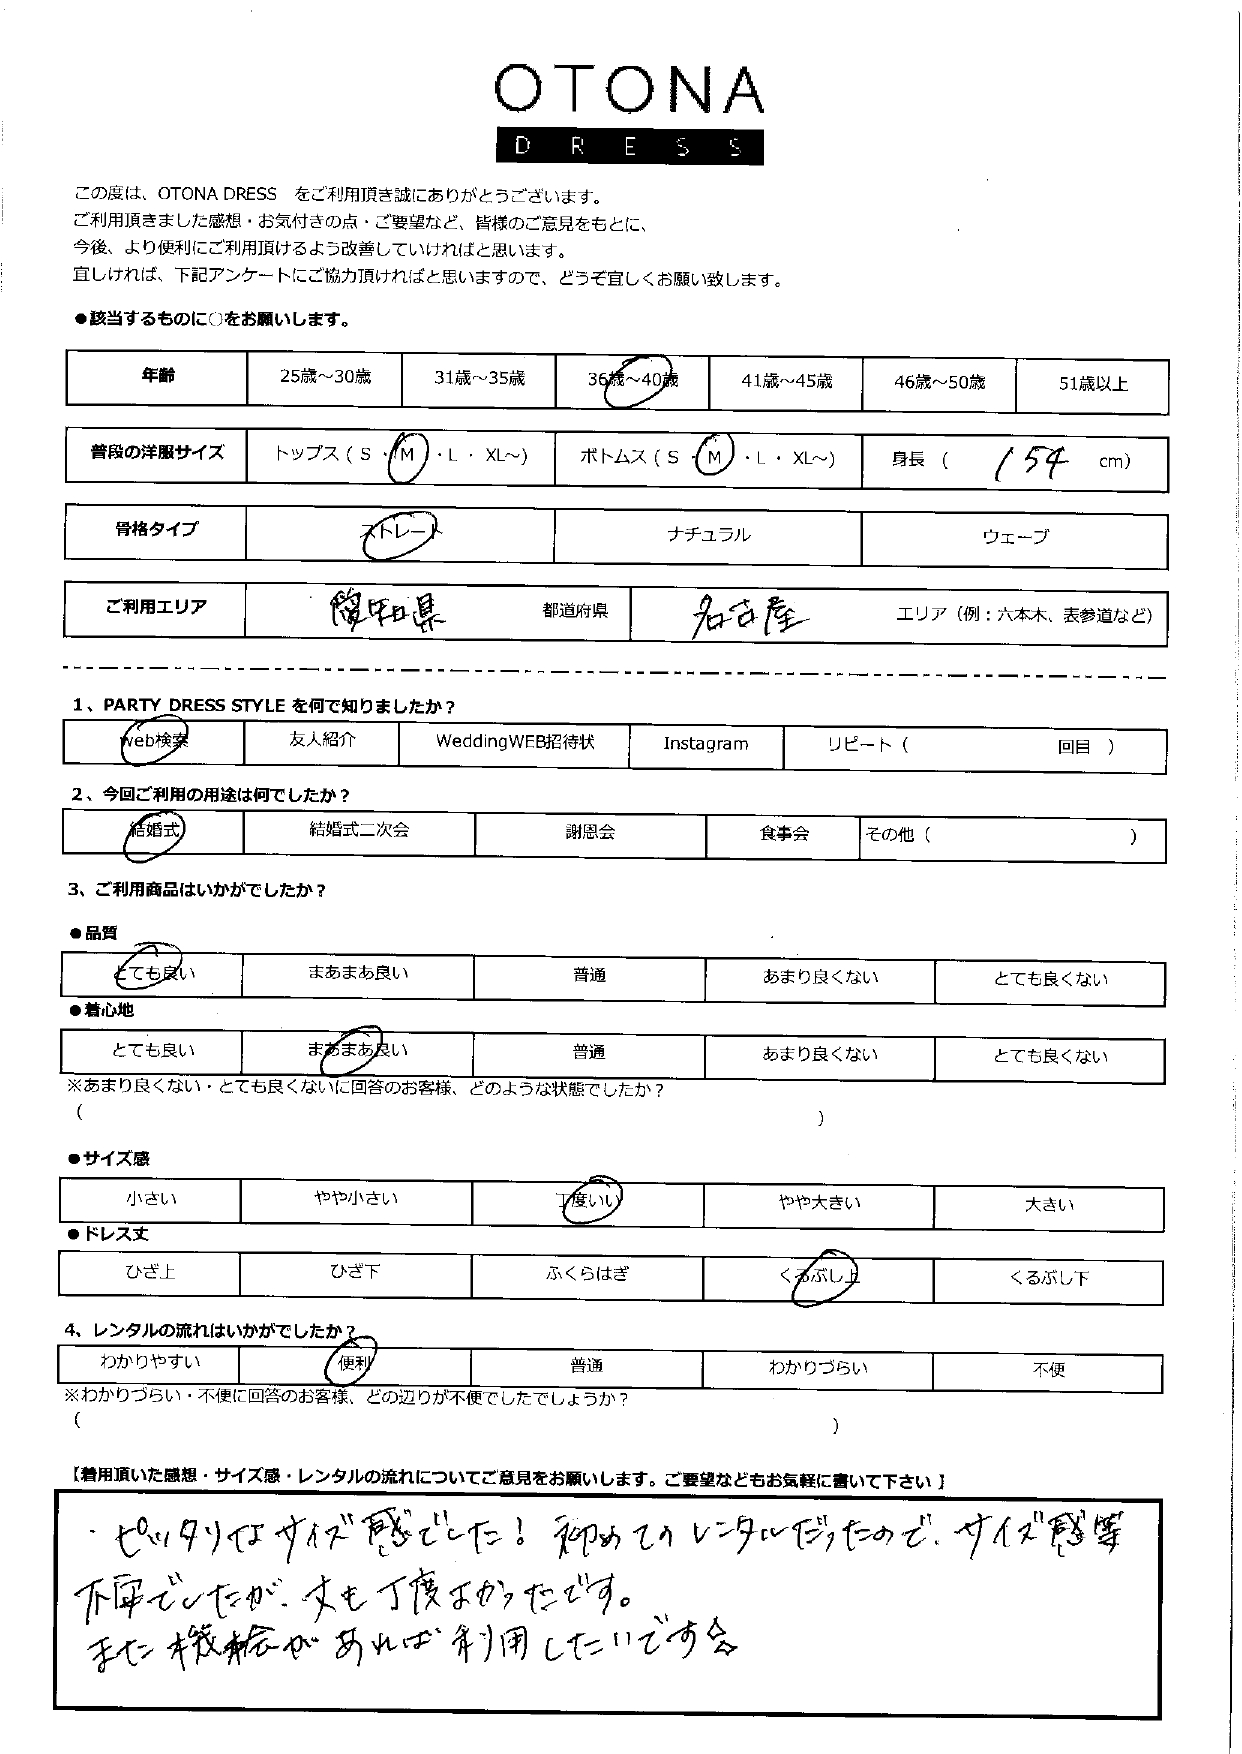 OTONA
DRESS
この度は、OTONA DRESS　をご利用頂き誠にありがとうございます。
ご利用頂きました感想・お気付きの点・ご要望など、皆様のご意見をもとに、
今後、より便利にご利用頂けるよう改善していければと思います。
宜しければ、下記アンケートにご協力頂ければと思いますので、どうぞ宜しくお願い致します。
●該当するものに○をお願いします。
年齢 25歳～30歳 31歳～35歳 36歳～40歳 41歳～45歳 46歳～50歳 51歳以上
普段の洋服サイズ トップス ( S ・ M ・ L ・ XL～) ボトムス ( S ・ M ・ L ・ XL～) 身長 ( 154 cm)
骨格タイプ ストレート ナチュラル ウェーブ
ご利用エリア 愛知県 都道府県 名古屋 エリア（例：六本木、表参道など）
1、PARTY DRESS STYLE を何で知りましたか？
web検索 友人紹介 WeddingWEB招待状 Instagram リピート ( 回目 )
2、今回ご利用の用途は何でしたか？
結婚式 結婚式二次会 謝恩会 食事会 その他 ( )
3、ご利用商品はいかがでしたか？
●品質
とても良い まあまあ良い 普通 あまり良くない とても良くない
●着心地
とても良い まあまあ良い 普通 あまり良くない とても良くない
※あまり良くない・とても良くないに回答のお客様、どのような状態でしたか？
( )
●サイズ感
小さい やや小さい 丁度いい やや大きい 大きい
●ドレス丈
ひざ上 ひざ下 ふくらはぎ くるぶし上 くるぶし下
4、レンタルの流れはいかがでしたか？
わかりやすい 便利 普通 わかりづらい 不便
※わかりづらい・不便に回答のお客様、どの辺りが不便でしたでしょうか？
( )
【着用頂いた感想・サイズ感・レンタルの流れについてご意見をお願いします。ご要望などもお気軽に書いて下さい 】
・ピッタリなサイズ感でした！初めてのレンタルだったので、サイズ感等
不安でしたが、丈も丁度よかったです。
また機会があれば利用したいです☆